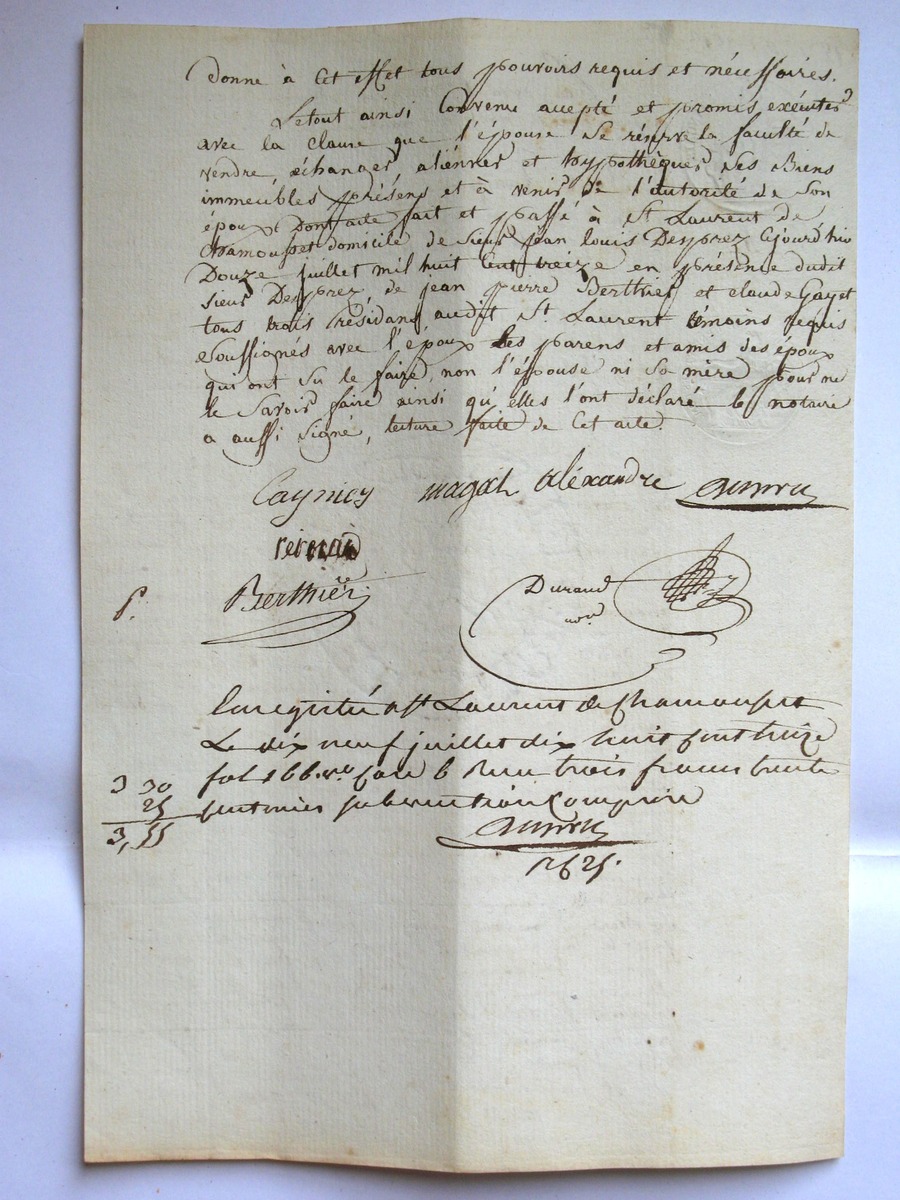 donne à cet effet tous pouvoirs requis et nécessaires.
Le tout ainsi convenu accepté et promis exécuter
avec la clause que l'épouse se réserve la faculté de
vendre, échanger aliénner et hypothéquer ses Biens
immeubles présens et à venir de l'autorité de son
époux Dont acte fait et passé à St Laurent de
Chamousset domicile de sieur jean louis Desprez cejourd'hui
Douze juillet mil huit cent treize en présence dudit
sieur Desprez de jean pierre Berthier et claude Gayet
tous trois Résidans audit St Laurent témoins requis
soussignés avec l'époux les parens et amis des époux
qui ont su le faire, non l'épouse ni sa mère pour ne
le savoir faire ainsi qu'elles l'ont déclaré le notaire
a aussi signé, lecture faite de cet acte.
magat Aléxandre
Berthier
Durand
nore
Enregistré a St Laurent de Chamousset
Le dix neuf juillet dix huit cent treize
fol 166 vo Case 6 Reçu trois francs trente
3 30
centimes subvention Comprise
25
3,55